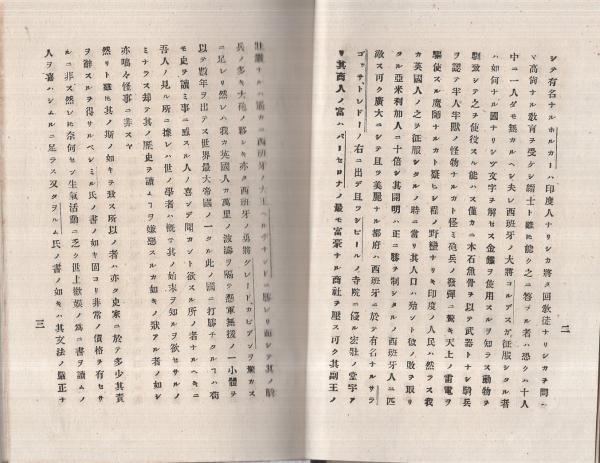 二
シテ有名ナルホルカーハ印度人ナリシカ將タ回敎徒ナリシカヲ問ハ
マ高尙ナル敎育ヲ受ケシ紳士ト雖ヒ能ク之ニ答フル者ハ恐クハ十人
中ニ一人ダモ無カルヘシ夫レ西班牙ノ大將コルデスガ征服シタル者
ハ如何ナル國ナリシゾ文字ヲ解セス金鐵ヲ使用スルヲ知ラス動物ヲ
馴致シテ之ヲ使役スル能ハス僅カニ木石魚骨ヲ以テ武器トナシ騎兵
ヲ認テ半人半獸ノ怪物ナルカト怪ミ砲兵ノ發彈ニ驚キ天上ノ雷電ヲ
驅使スル魔師ナルカト疑ヒシ程ノ野蠻ナリキ印度ノ人民ハ然ラス我
カ英國人ノ之ヲ征服シタルノ時ニ當リ其人口ハ殆ント彼ノ敗ヲ取リ
タル亞米利加人ニ十倍シ其開明ハ正ニ勝ヲ制シタルノ西班牙人ニ匹
敵ス可ク廣大ニシテ且ツ美麗ナル都府ハ西班牙ニ於テ有名ナルサラ
ゴッサ、トレドーノ右ニ出デ且ツシビールノ寺院ニ優ル宏壯ノ堂宇ア
リ其商人ノ富ハバーセロナノ最モ富豪ナル商社ヲ壓ス可ク其副王ノ
壯麗ナルハ遙カニ西班牙ノ大王ヘルヂナンドニ勝レリ而シテ其ノ騎
兵ノ多キ大砲ノ夥シキ亦タ西班牙ノ勇將グレードカピタンヲ驚カス
ニ足レリ然レハ我カ英國人カ萬里ノ波濤ヲ隔テ懸軍無援ノ一小體ヲ
以テ數年ヲ出テス世界最大帝國ノ一タル此ノ國ニ打勝チタルコハ苟
モ史ヲ讀ミ事ニ感スル人ノ喜ンデ聞カント欲スル所ノ者ナルヘキニ
吾人ノ見ル所ニ據レハ世ノ學者ハ慨シテ其ノ始末ヲ知ルヲ欲セサルノ
ミナラス却テ其ノ歷史ヲ讀ムコヲ嫌惡スルカ如キノ狀アル者ノ如シ
亦鳴々怪事ニ非スヤ
然リト雖ヒ其ノ斯ノ如キヲ致ス所以ノ者ハ亦タ史家ニ於テ多少其責
ヲ辭スルヲ得サルベシミル氏ノ書ノ如キ固ヨリ非常ノ價格ヲ有セサ
ルニ非ス然レヒ奈何セン生氣活動ニ乏ク世上歡娛ノ爲ニ書ヲ讀ムノ
人ヲ喜ハシムルニ足ラス又タヲルム氏ノ書ノ如キハ其文法ノ嚴正ナ
三